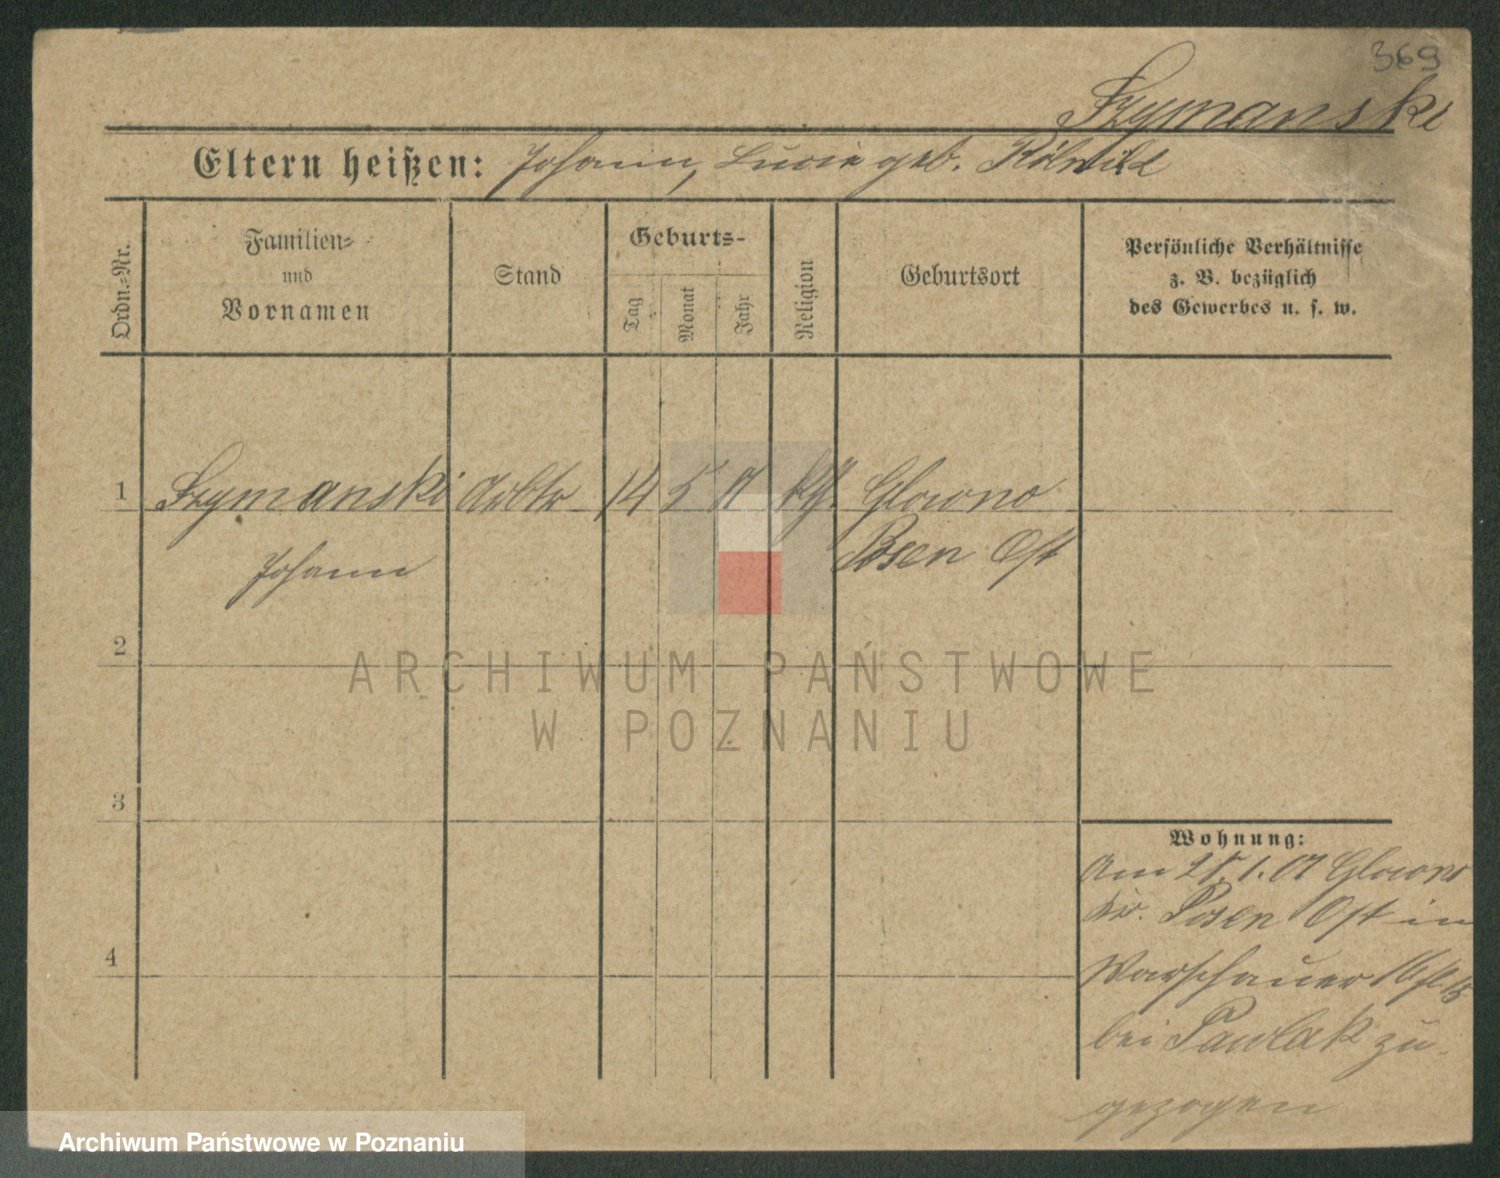 369
Szymanski
Eltern heißen: Johann, Lucie geb.
Ordn.-Nr.
Familien-
und
Vornamen
Stand
Geburts-
Tag
Monat
Jahr
Religion
Geburtsort
Persönliche Verhältnisse
z. B. bezüglich
des Gewerbes u. s. w.
1 Szymanski Arbtr 14 5 kth. Glowno
Johann Posen Ost
2
ARCHIWUM PAŃSTWOWE
W POZNANIU
3
4
Wohnung:
Am 1. 07 Glowno
Kr. Posen Ost in
Warschauer
bei Pawlak zu-
gezogen
Archiwum Państwowe w Poznaniu